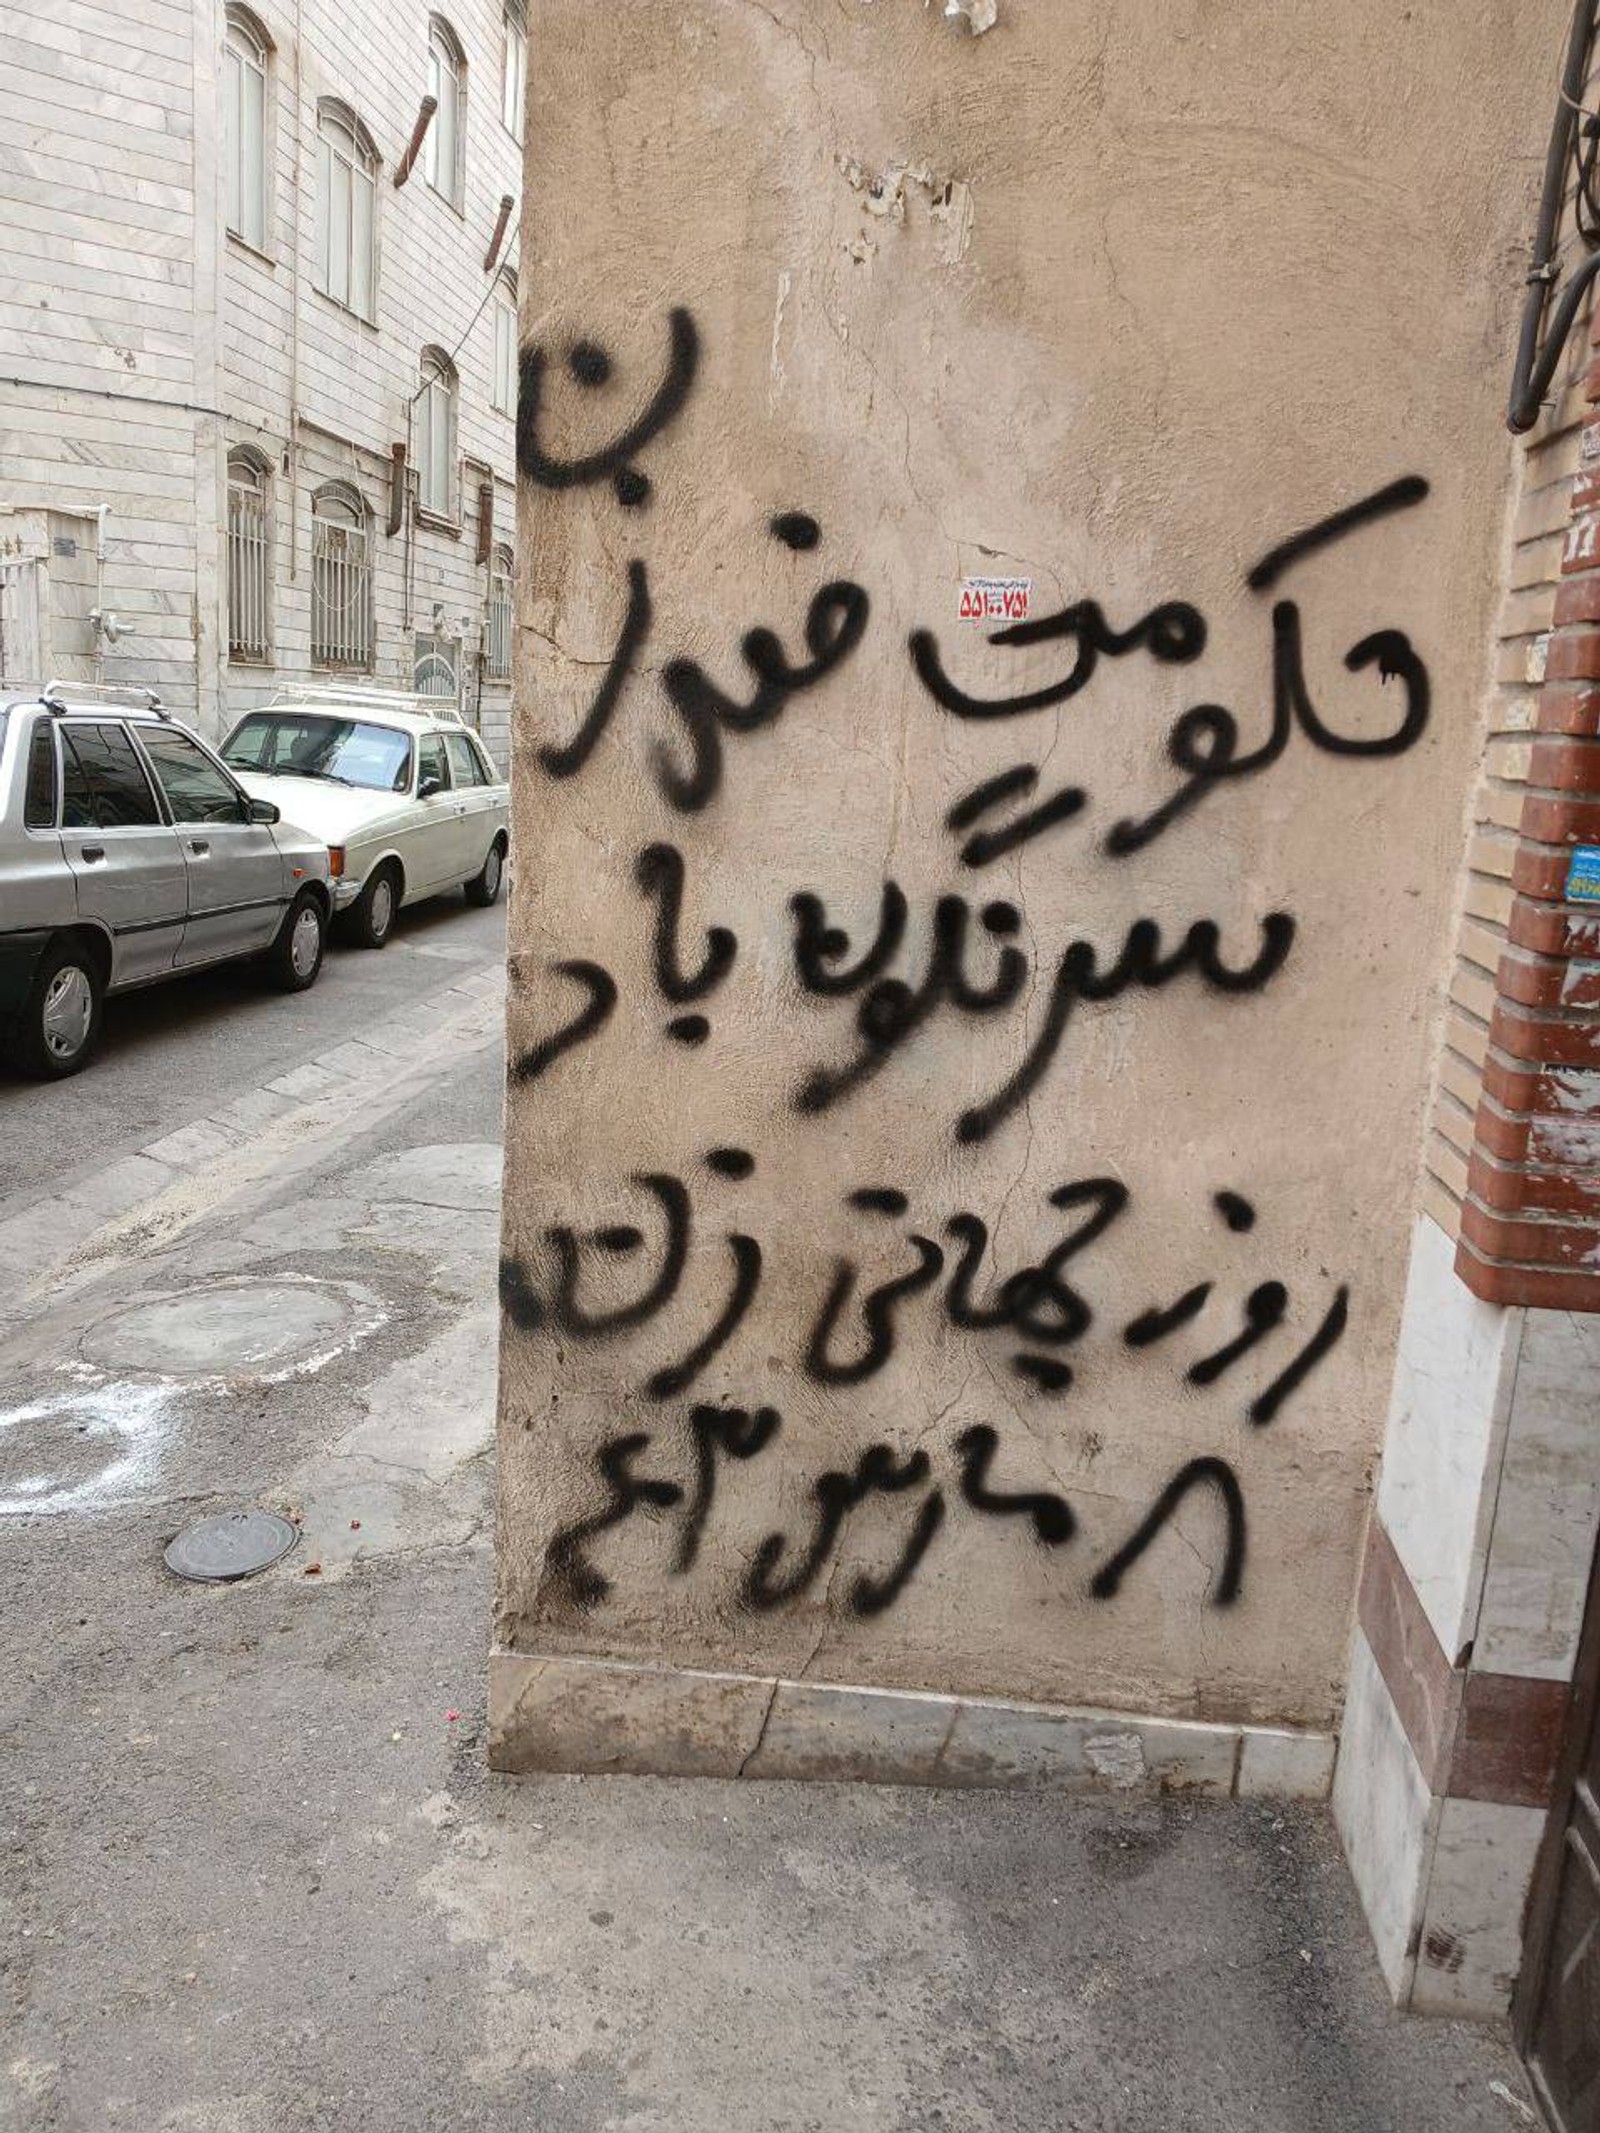 حکومت ضد زن
۵۵۱۰۰۷۵۱
سرنگون باد
روز جهانی زن
۸ مارس